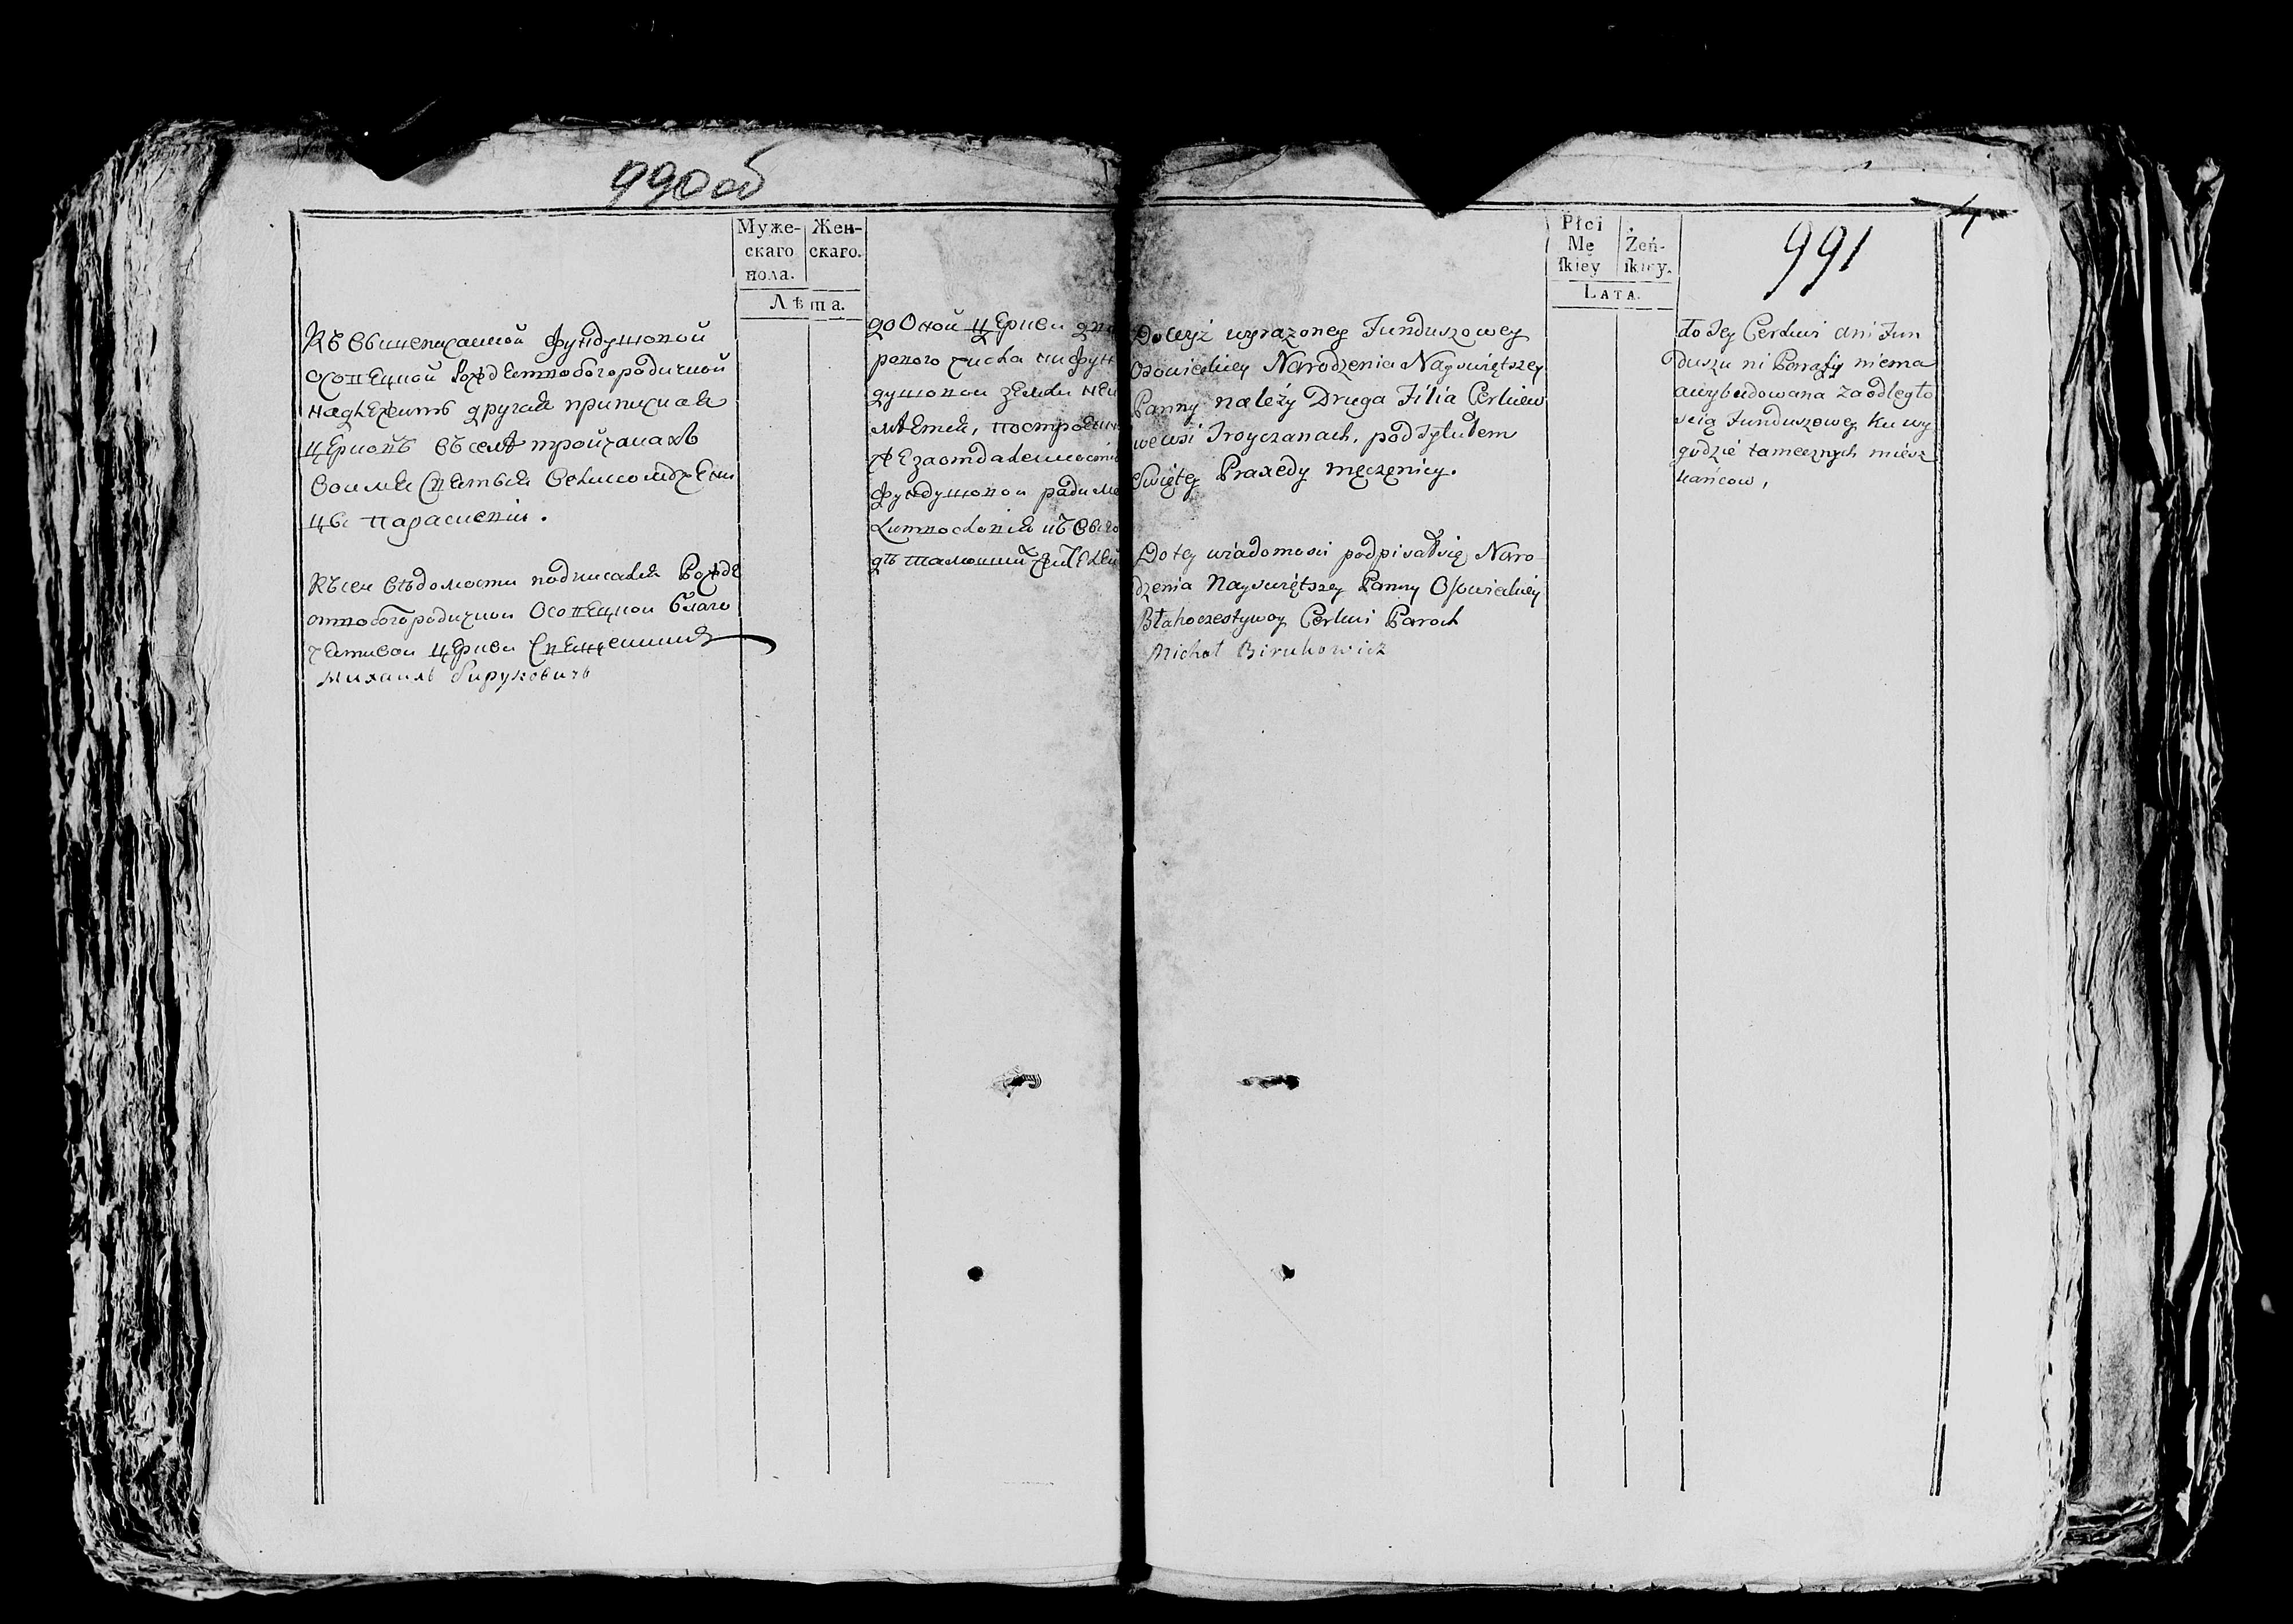 990об
Муже-
скаго
пола.
Жен-
скаго.
Лѣта.
Къ вышеписанной фундушовой
Осовецкой Рождествобогородичной
надлежитъ другая приписная
церковь въ селѣ Тройчанахъ
во имя Святыя Великомученицы
цы Параскевіи.
Къ сей вѣдомости подписался Рожде
ствобогородичной Осовецкой благо
честивой церкви Священникъ
Михаилъ Бируковичъ
до Оной церкви дво
рового числа ни фун
душовой земли неи
мѣется, построенна
же за отдаленностію
фундушовой ради мо
литвословія
991
Płci
Mę
ſkiey
Żeń-
ſkiey.
LATA.
Do wyż wyrażoney Funduszowey
Osowieckiey Narodzenia Nayswiętszey
Panny należy Druga Filia Cerkiew
we wsi Troyczanach, pod Tytułem
Swiętey Praxedy męczenicy.
Do tey wiadomosci podpisał się Naro-
dzenia Nayswiętszey Panny Osowieckiey
Błahoczestywey Cerkwi Paroch
Michał Birukowicz
do Tey Cerkwi ani Fun
duszu ni Parafiy niema
a wybudowana za odległo
scią Funduszowey ku wy
godzie tamecznych miesz
kańcow,